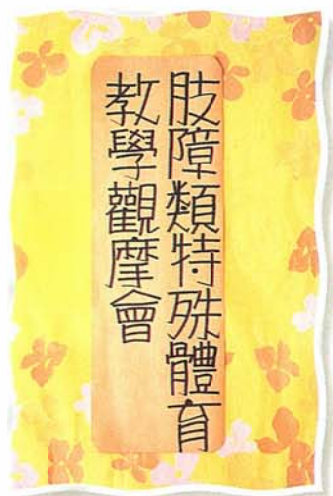 肢障類特殊體育
教學觀摩會